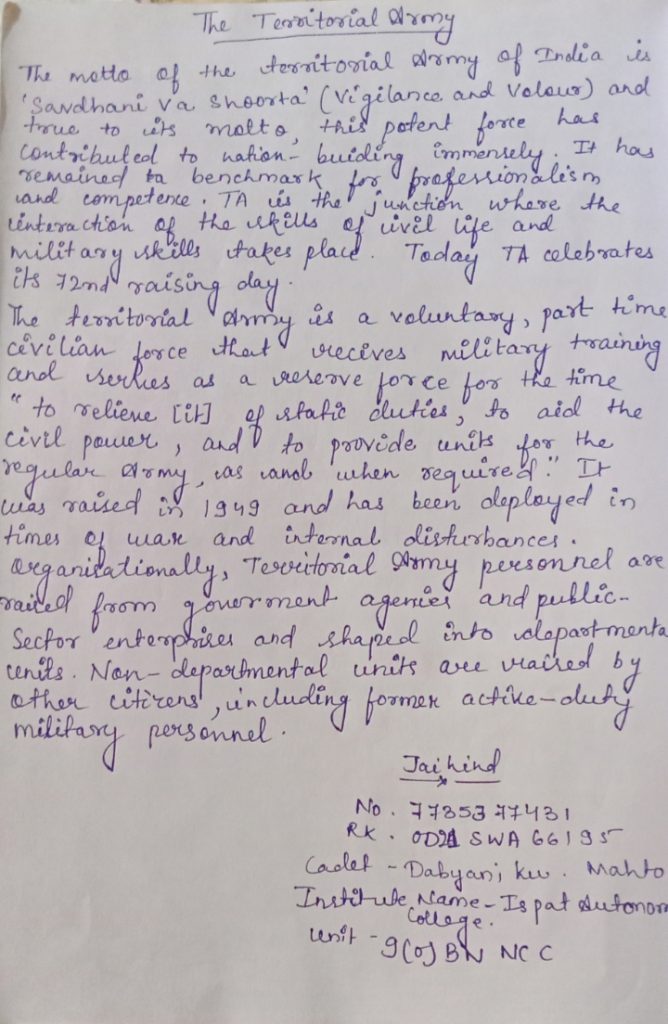 The Territorial Army
The motto of the territorial Army of India is
'Savdhani va Shoorta' (Vigilance and Valour) and
true to its motto, this potent force has
contributed to nation-buiding immensely. It has
remained ta benchmark for professionalism
and competence. TA is the junction where the
interaction of the skills of civil life and
military skills takes place. Today TA celebrates
its 72nd raising day.
The territorial Army is a voluntary, part time
civilian force that recives military training
and serves as a reserve force for the time
"to relieve [it] of static duties, to aid the
civil power, and to provide units for the
regular Army, as and when required." It
was raised in 1949 and has been deployed in
times of war and internal disturbances.
Organisationally, Territorial Army personnel are
raised from government agencies and public-
Sector enterprises and shaped into departmenta
units. Non-departmental units are raised by
other citizens, including former active-duty
military personnel.
Jaihind
No. 7735377431
RK. OD21 SWA 66195
Cadet - Dabyani ku. Mahto
Institute Name - Ispat Autonom
College.
unit - 9(O) BN NCC